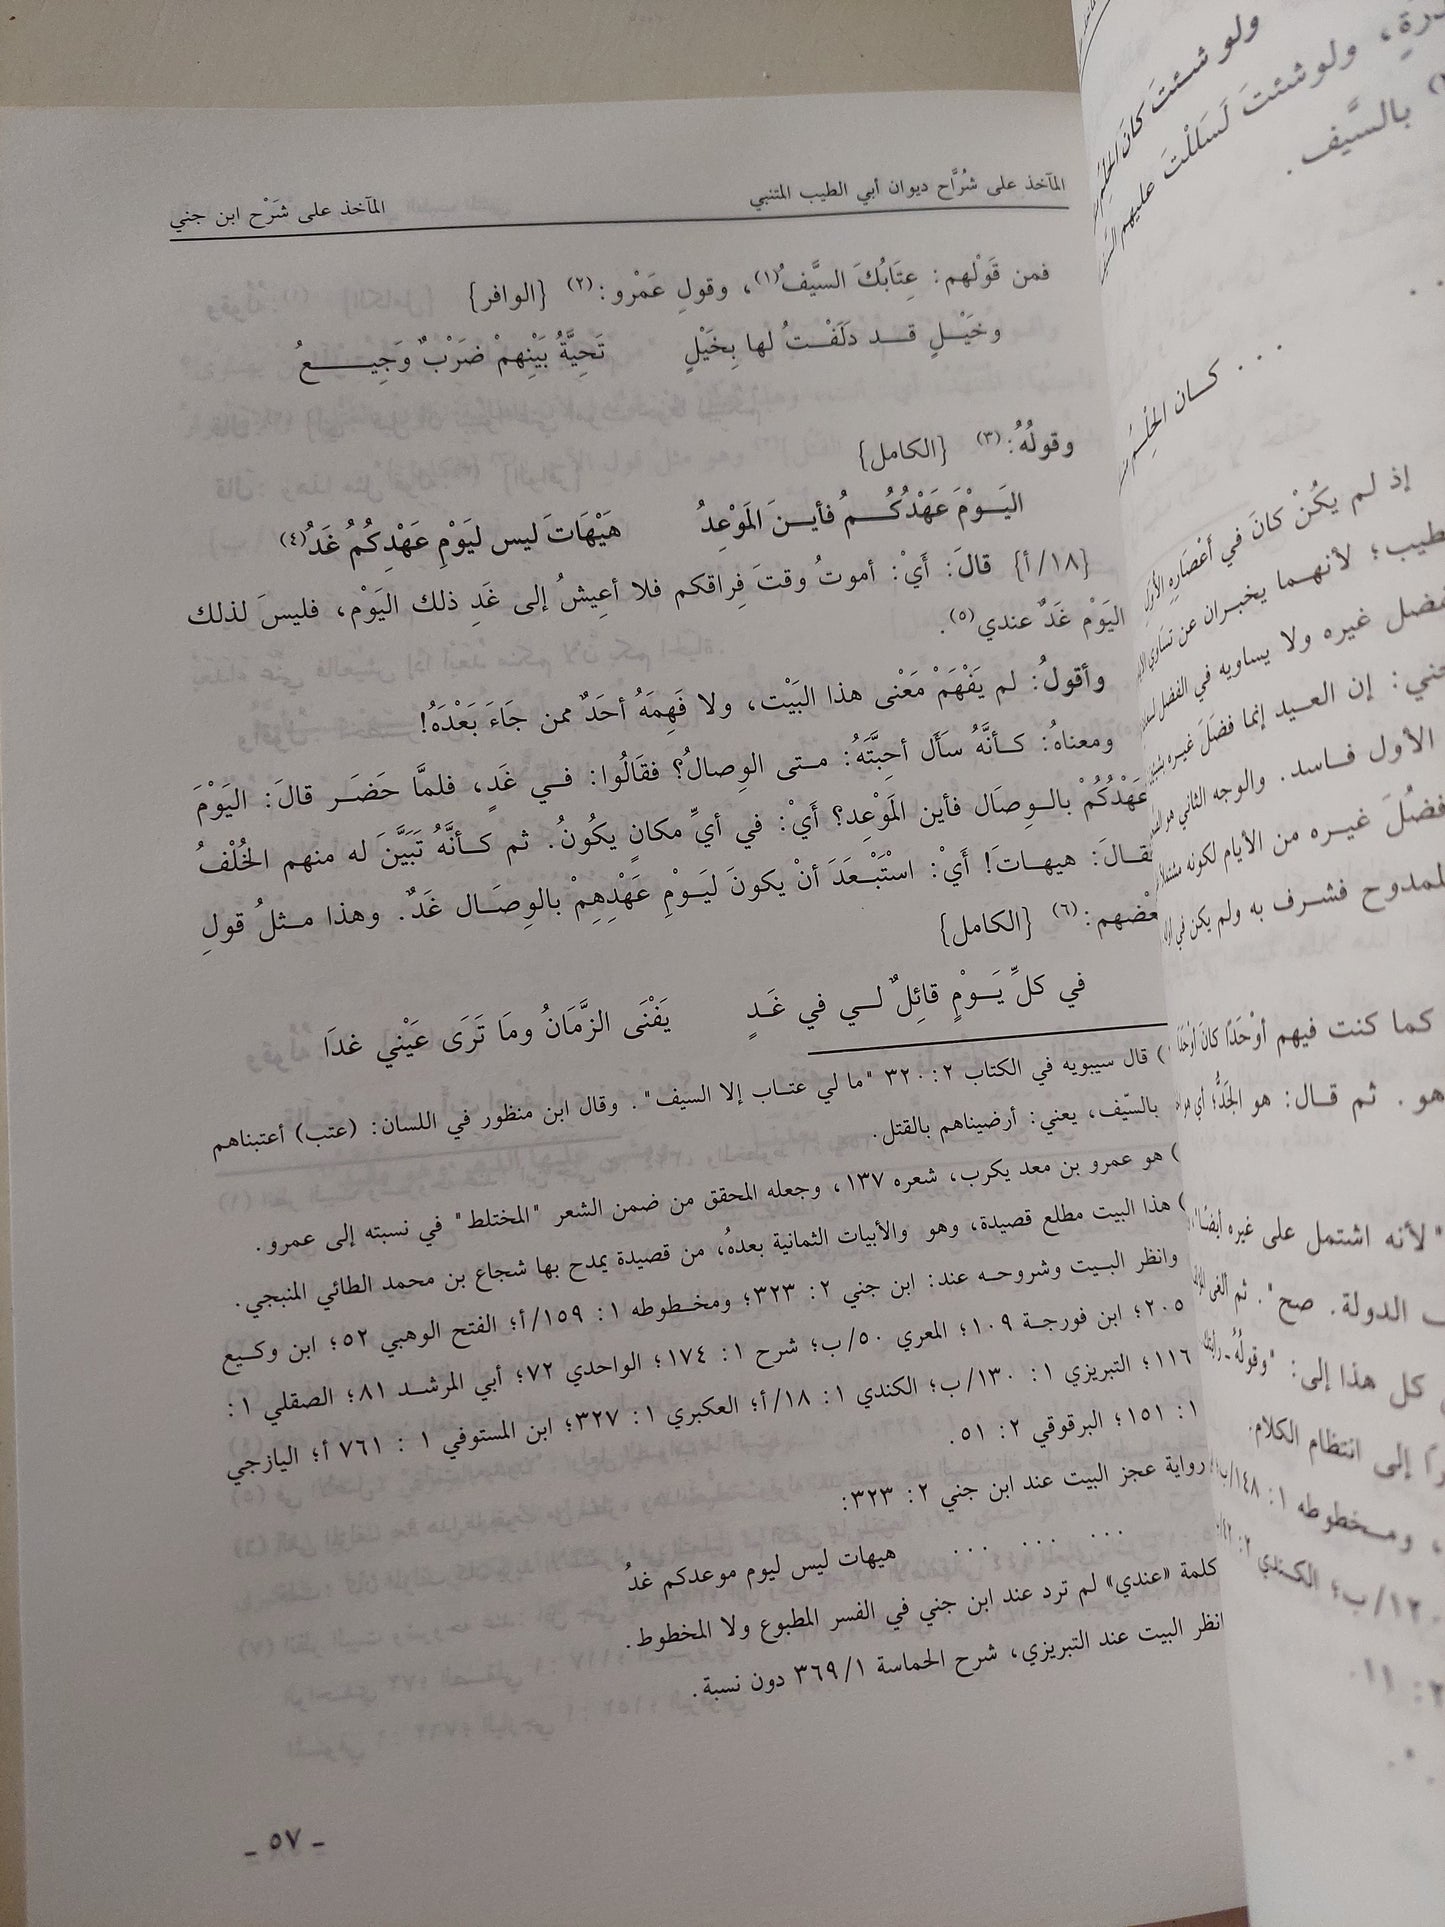 المآخذ على شُرَّاح ديوان أبي الطيب المتنبي المآخذ على شَرْح ابن جني
فمن قَوْلهم: عِتَابُكَ السَّيفُ(١)، وقولِ عَمْرو:(٢) {الوافر}
وخَيْـلٍ قـد دَلَفْـتُ لها بِخَيْلٍ تَحِيَّةُ بَيْنِهمْ ضَرْبٌ وَجِيـعُ
وقولُهُ:(٣) {الكامل}
اليَـوْمَ عَهْدُكُـمُ فأيـنَ المَوْعِدُ هَيْهَاتَ ليس ليَوْمِ عَهْدِكُمُ غَدُ(٤)
{١٨/أ} قالَ: أَيْ: أموتُ وقتَ فِراقكم فلا أعِيشُ إلى غَدِ ذلك اليَوْم، فليسَ لذلك
اليَوْم غَدٌ عندي(٥).
وأقولُ: لم يَفْهَمْ مَعْنى هذا البَيْت، ولا فَهِمَهُ أحَدٌ ممن جَاءَ بَعْدَهُ!
ومعناهُ: كـأنَّهُ سَأَل أحِبَّتَهُ: مـتى الوِصالُ؟ فقَالُوا: فـي غَدٍ، فلمَّا حَضَـر قالَ: اليَوْمَ
عَهْدُكُمْ بالـوِصَال فأين المَوْعِد؟ أَيْ: في أيِّ مكانٍ يكُونُ. ثم كـأنَّهُ تَبَيَّنَ له منهم الخُلْفُ
فقـالَ: هيهـاتَ! أَيْ: اسْتَبْـعَدَ أنْ يكونَ ليَـوْمِ عَهْدِهِمْ بالوِصَـال غَدٌ. وهذا مـثلُ قولِ
بعضهم:(٦) {الكامل}
في كلِّ يَـوْمٍ قائِلٌ لـي في غَـدٍ يَفْنَى الزَّمَانُ ومَا تَرَى عَيْني غدَا
) قال سيبويه في الكتاب ٢: ٣٢٠ "ما لي عتـاب إلا السيف". وقال ابن منظور في اللسان: (عتب) أعتبناهم
بالسّيف، يعني: أرضيناهم بالقتل.
) هو عمرو بن معد يكرب، شعره ١٣٧، وجعله المحقق من ضمن الشعر "المختلط" في نسبته إلى عمرو.
) هذا البيت مطلع قصيدة، وهو والأبيات الثمانية بعدهُ، من قصيدة يمدح بها شجاع بن محمد الطائي المنبجي.
وانظر البـيت وشروحـه عند: ابن جني ٢: ٣٢٣؛ ومخـطوطه ١: ١٥٩/أ؛ الفتح الوهبي ٥٢؛ ابن وكـيع
٢٠٥؛ ابن فورجـة ١٠٩؛ المعري ٥٠/ب؛ شرح ١: ١٧٤؛ الواحدي ٧٢؛ أبي المرشـد ٨١؛ الصقلي ١:
١١٦؛ التبريزي ١: ١٣٠/ب؛ الكندي ١: ١٨/أ؛ العكبري ١: ٣٢٧؛ ابن المستوفي ١: ٧٦١ أ؛ اليازجي
١: ١٥١؛ البرقوقي ٢: ٥١.
رواية عجز البيت عند ابن جني ٢: ٣٢٣:
... ... ... هيهات ليس ليوم موعدكم غدُ
كلمة «عندي» لم ترد عند ابن جني في الفسر المطبوع ولا المخطوط.
انظر البيت عند التبريزي، شرح الحماسة ٣٦٩/١ دون نسبة.
ـ ٥٧ ـ
ولو شئتَ كانَ الحِلمُ
ولو شئتَ لَسَلَلْتَ عليهم
بالسَّيف.
... كـان الحِلْـمُ
إذ لم يكُنْ كانَ في أعْصَارِهِ الأُوَلِ
لأنهـما يخبـران عن تسَاوي
غيره ولا يساويه في الفضل
إن العـيد إنما فضَلَ غيـره
الأول فـاسد. والوجه الثاني هو
غيـره من الأيام لكونه
فشـرف به ولم يكن في
كما كنت فيهم أوْحَدًا كانَ أوْحَدَا
هو. ثم قـال: هو الجَدُّ؛ أي
"لأنه اشتمل على غيره أيضًا"
الدولة. صح". ثم ألغى
كل هذا إلى: "وقولُهُ ـ
إلى انتظام الكلام.
ومـخطوطه ١: ١٤٨/ب
الكـندي ٢:
: ١١.